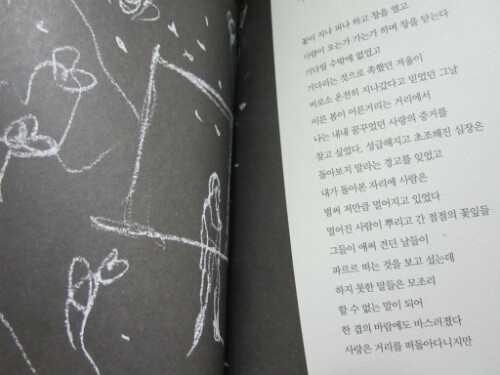 꽃이 지나 피나 하고 창을 열고
사람이 오는가 가는가 하며 창을 닫는다
기다릴 수밖에 없었고
기다리는 것으로 족했던 겨울이
비로소 온전히 지나갔다고 믿었던 그날
이른 봄이 어른거리는 거리에서
나는 내내 꿈꾸었던 사랑의 증거를
찾고 싶었다, 성급해지고 초조해진 심장은
돌아보지 말라는 경고를 잊었고
내가 돌아본 자리에 사람은
벌써 저만큼 멀어지고 있었다
멀어진 사람이 뿌리고 간 점점의 꽃잎들
그들이 애써 견딘 날들이
파르르 떠는 것을 보고 섰는데
하지 못한 말들은 모조리
할 수 없는 말이 되어
한 겹의 바람에도 바스러졌다
사랑은 거리를 떠돌아다니지만